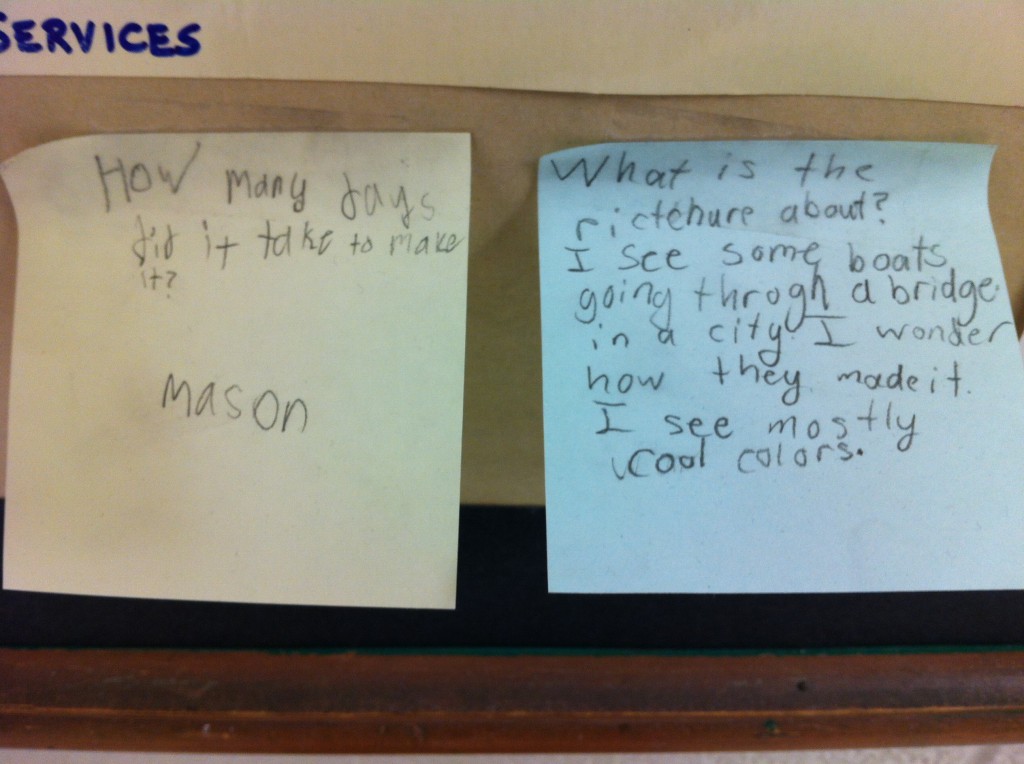 SERVICES
How many days
did it take to make
it?
mason
What is the
pictehure about?
I see some boats
going throgh a bridge.
in a city. I wonder
how they made it.
I see mostly
cool colors.